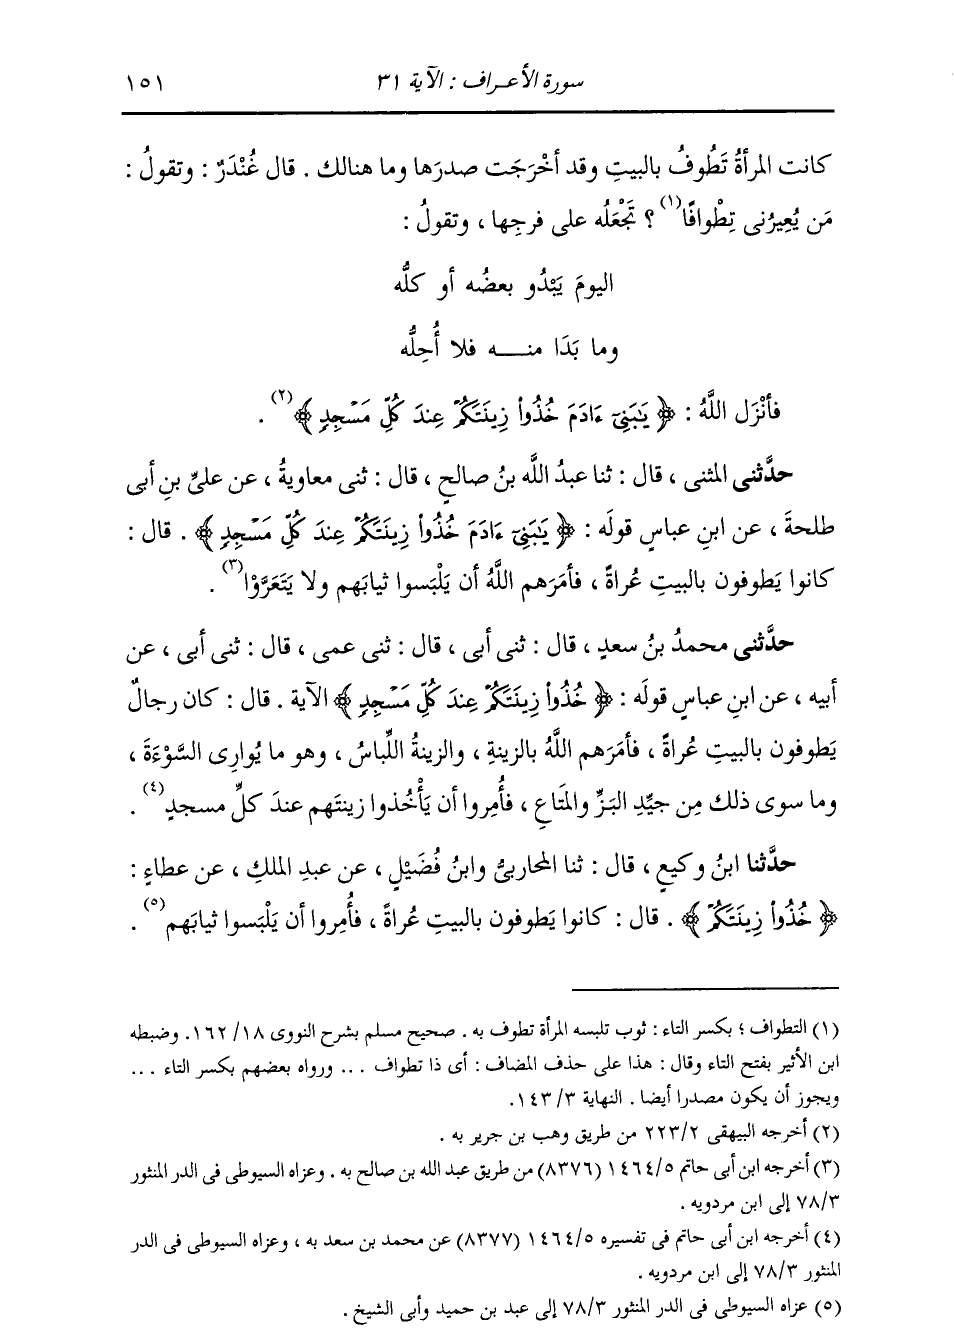 سورة الأعراف : الآية ٣١ ١٥١
كانت المرأةُ تَطُوفُ بالبيتِ وقد أخْرَجَت صدرَها وما هنالك . قال غُنْدَرٌ : وتقولُ :
مَن يُعِيرُنى تِطْوافًا(١) ؟ تَجْعَلُه على فرجِها ، وتقولُ :
اليومَ يَبْدُو بعضُه أو كلُّه
وما بَدَا منــــه فلا أُحِلُّه
فأنْزَل اللَّهُ : ﴿ يَٰبَنِىٓ ءَادَمَ خُذُوا۟ زِينَتَكُمْ عِندَ كُلِّ مَسْجِدٍ ﴾(٢) .
حدَّثنى المثنى ، قال : ثنا عبدُ اللَّه بنُ صالحٍ ، قال : ثنى معاويةُ ، عن علىِّ بنِ أبى
طلحةَ ، عن ابنِ عباسٍ قولَه : ﴿ يَٰبَنِىٓ ءَادَمَ خُذُوا۟ زِينَتَكُمْ عِندَ كُلِّ مَسْجِدٍ ﴾ . قال :
كانوا يَطوفون بالبيتِ عُراةً ، فأمَرَهم اللَّهُ أن يَلْبَسوا ثيابَهم ولا يَتَعَرَّوْا(٣) .
حدَّثنى محمدُ بنُ سعدٍ ، قال : ثنى أبى ، قال : ثنى عمى ، قال : ثنى أبى ، عن
أبيه ، عن ابنِ عباسٍ قولَه : ﴿ خُذُوا۟ زِينَتَكُمْ عِندَ كُلِّ مَسْجِدٍ ﴾ الآية . قال : كان رجالٌ
يَطوفون بالبيتِ عُراةً ، فأمَرَهم اللَّهُ بالزينةِ ، والزينةُ اللِّباسُ ، وهو ما يُوارِى السَّوْءَةَ ،
وما سوى ذلك مِن جيِّدِ البَزِّ والمَتَاعِ ، فأُمِروا أن يَأْخُذوا زينتَهم عندَ كلِّ مسجدٍ(٤) .
حدَّثنا ابنُ وكيعٍ ، قال : ثنا المحاربىُّ وابنُ فُضَيْلٍ ، عن عبدِ الملكِ ، عن عطاءٍ :
﴿ خُذُوا۟ زِينَتَكُمْ ﴾ . قال : كانوا يَطوفون بالبيتِ عُراةً ، فأُمِروا أن يَلْبَسوا ثيابَهم(٥) .
(١) التطواف ؛ بكسر التاء : ثوب تلبسه المرأة تطوف به . صحيح مسلم بشرح النووى ١٨/ ١٦٢. وضبطه
ابن الأثير بفتح التاء وقال : هذا على حذف المضاف : أى ذا تطواف ... ورواه بعضهم بكسر التاء ...
ويجوز أن يكون مصدرا أيضا . النهاية ٣/ ١٤٣.
(٢) أخرجه البيهقى ٢/ ٢٢٣ من طريق وهب بن جرير به .
(٣) أخرجه ابن أبى حاتم ٥/ ١٤٦٤ (٨٣٧٦) من طريق عبد الله بن صالح به . وعزاه السيوطى فى الدر المنثور
٣/ ٧٨ إلى ابن مردويه .
(٤) أخرجه ابن أبى حاتم فى تفسيره ٥/ ١٤٦٤ (٨٣٧٧) عن محمد بن سعد به ، وعزاه السيوطى فى الدر
المنثور ٣/ ٧٨ إلى ابن مردويه .
(٥) عزاه السيوطى فى الدر المنثور ٣/ ٧٨ إلى عبد بن حميد وأبى الشيخ .